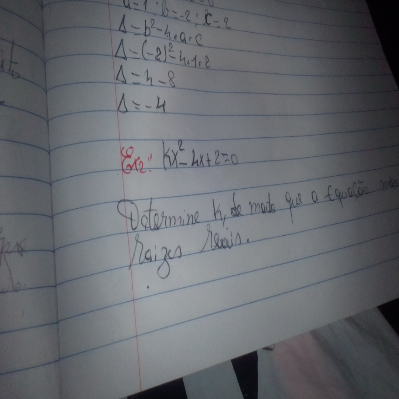 a=1; b=-2; c=2
Δ=b²-4.a.c
Δ=(-2)²-4.1.2
Δ=4-8
Δ=-4
Ex: kx²-4x+2=0
Determine k, de modo que a Equação
raizes reais.